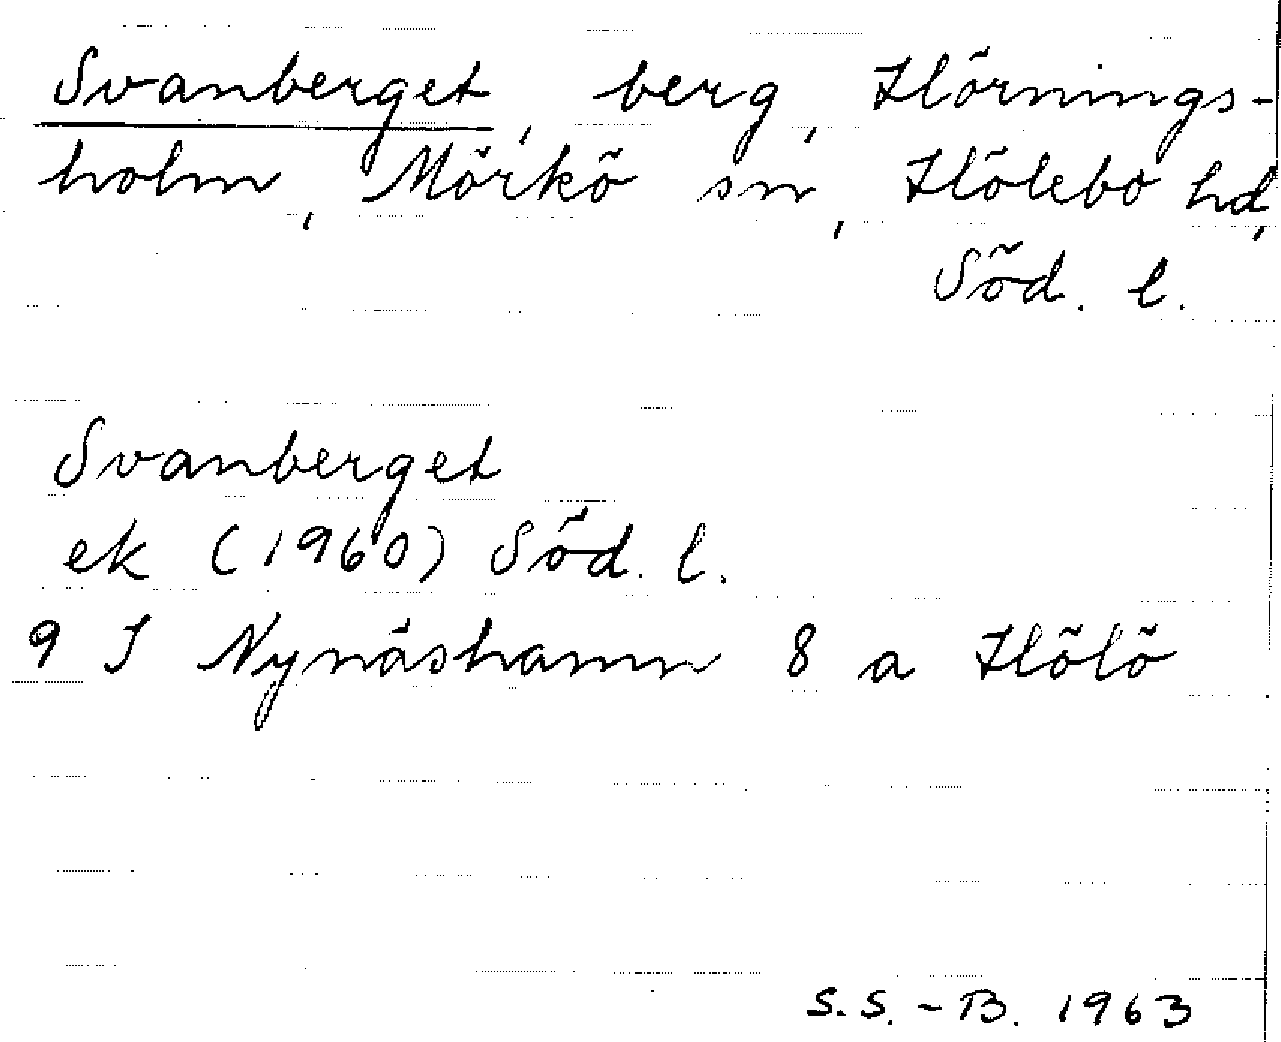 Svanberget, berg, Hörnings-
holm, Mörkö sn, Hölebo hd,
Söd. l.
Svanberget
ek (1960) Söd. l.
9 I Nynäshamn 8 a Hölö
S.S.-B. 1963